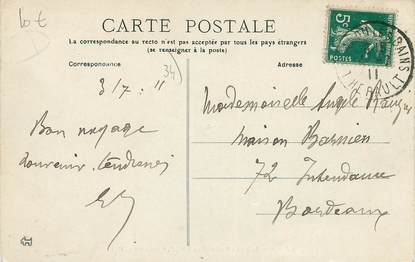 10 €
CARTE POSTALE
La correspondance au recto n'est pas acceptée par tous les pays étrangers
(se renseigner à la poste)
Correspondance
Adresse
34
3/7. 11
Bon voyage
souvenir. tendresses
5c
POSTES
BAINS
11
HERAULT
Mademoiselle Angèle
Maison Barnier
72 Intendance
Bordeaux